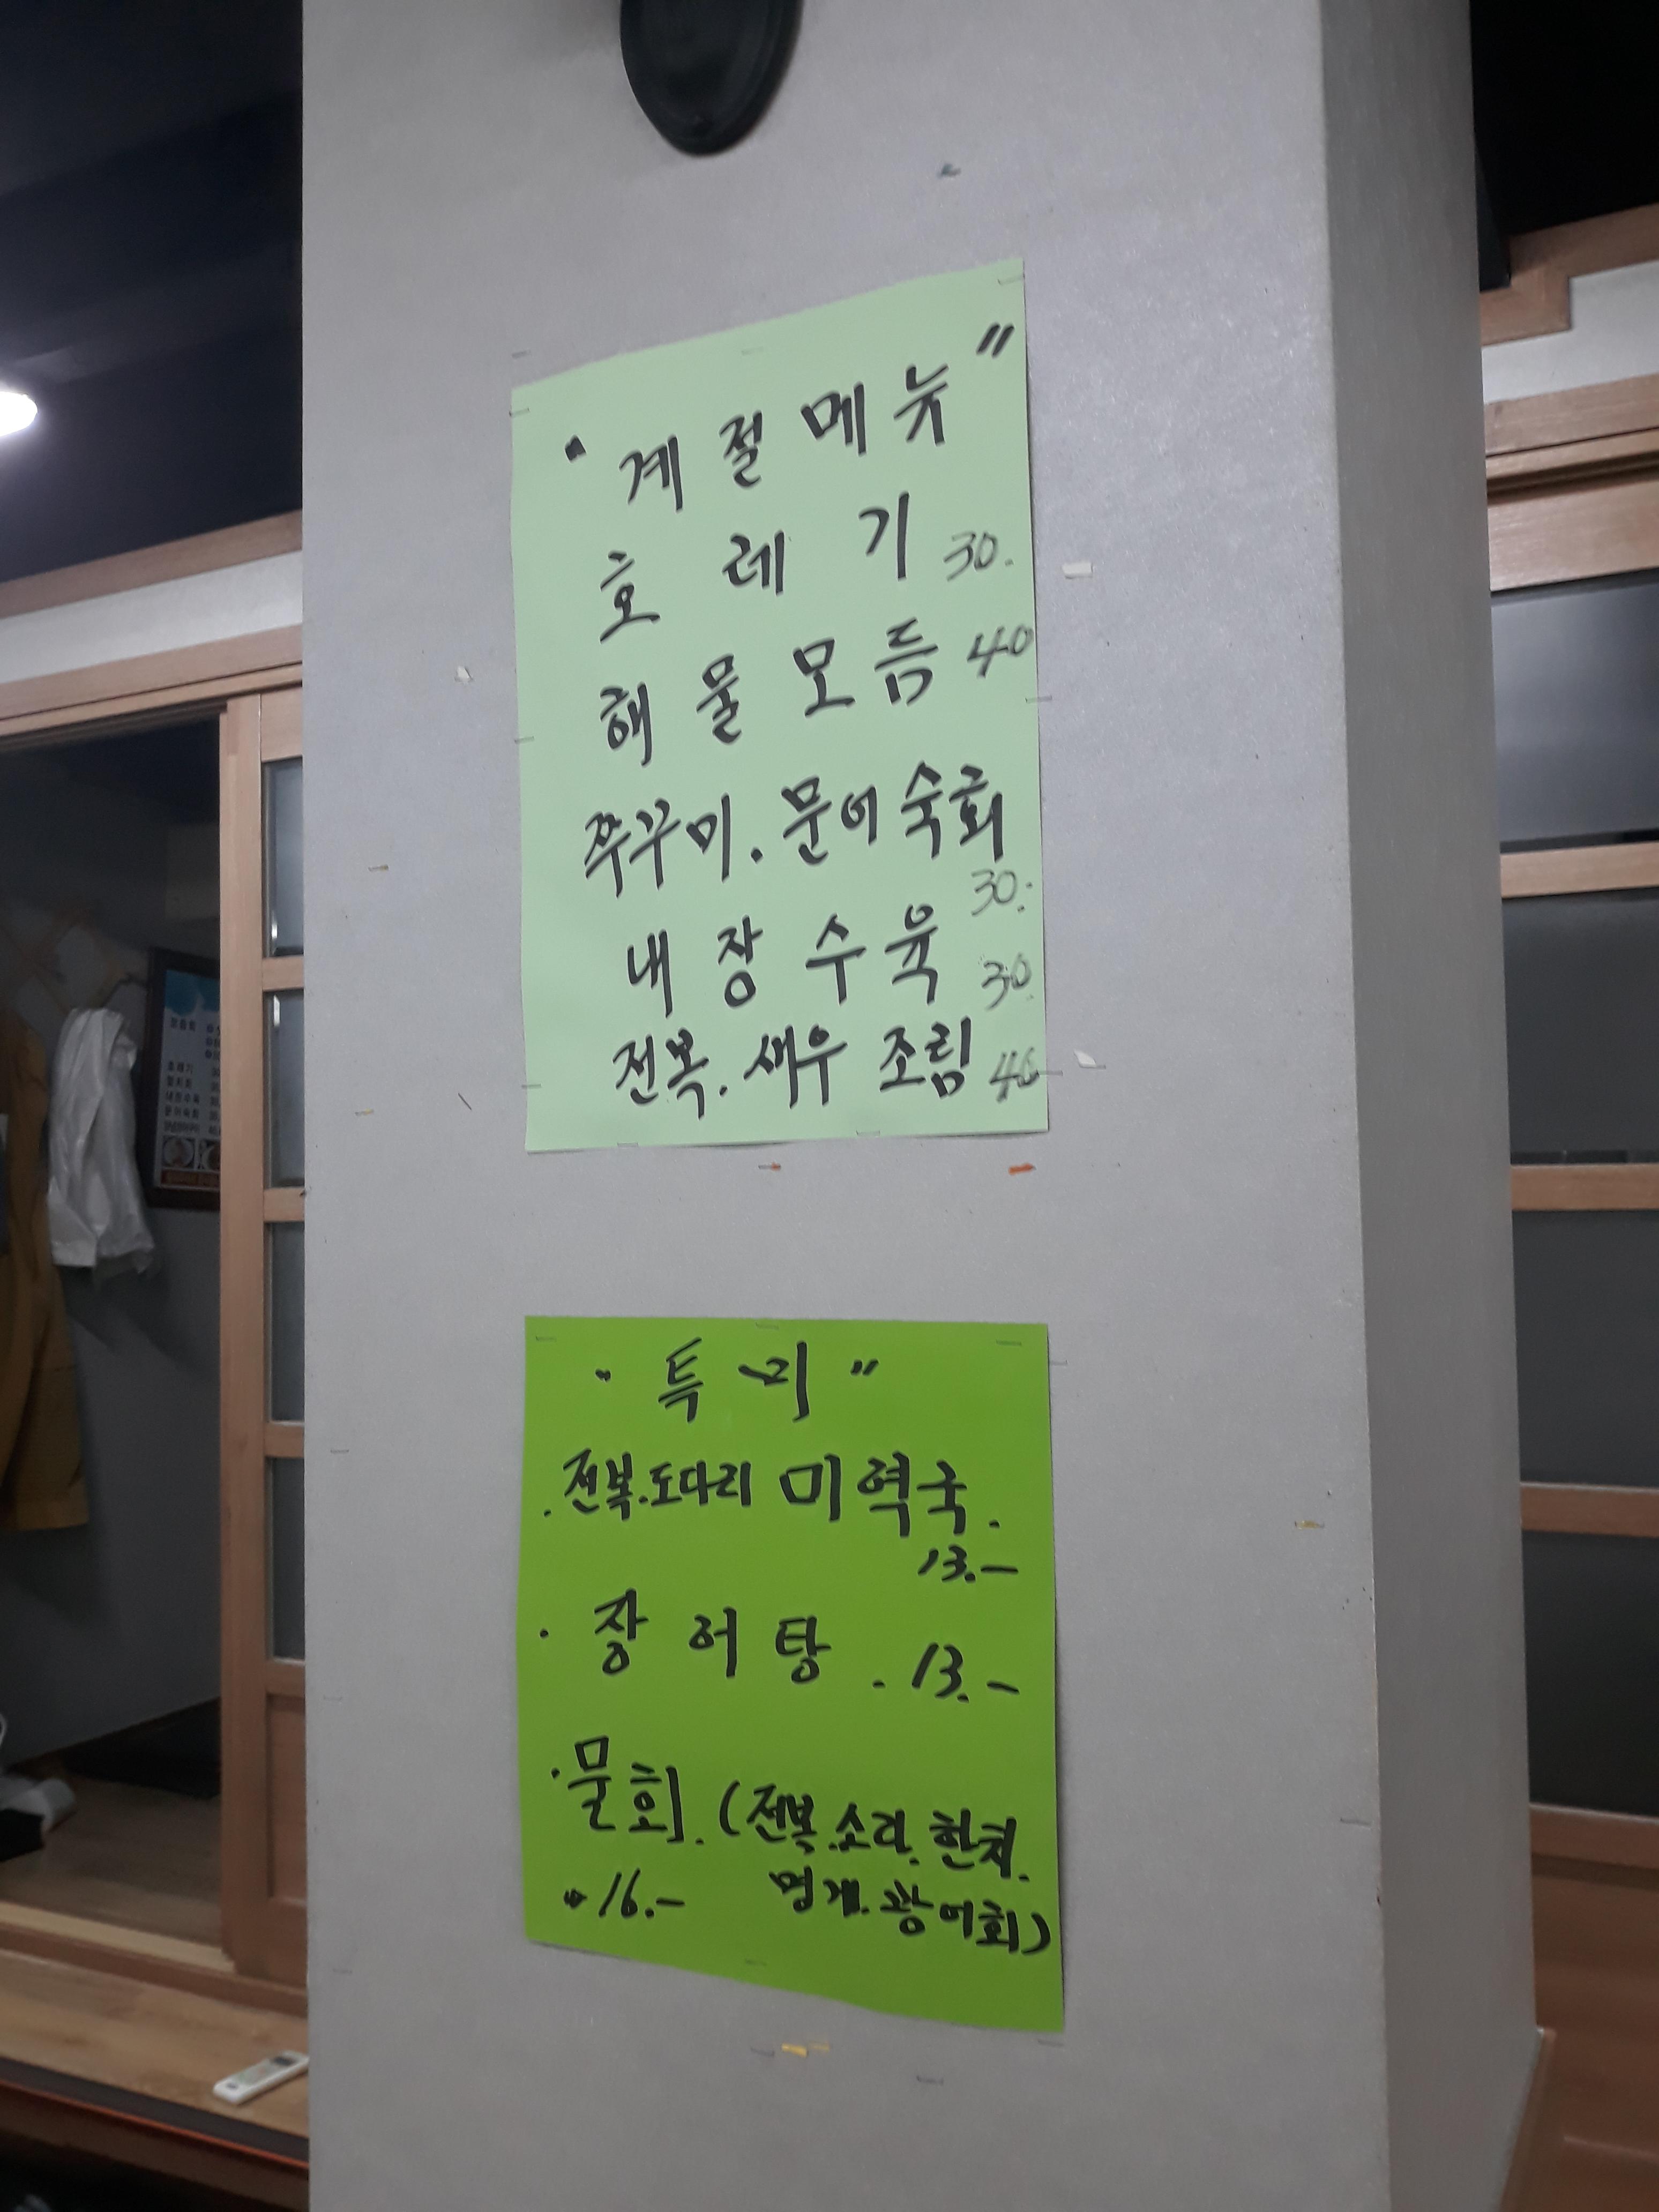 "계절메뉴"
호레기 30.
해물모듬 40
쭈꾸미.문어숙회
30.
내장수육 30.
전복.새우 조림 40
"특미"
.전복.도다리 미역국.
13.-
·장어탕.13.-
·물회.(전복.소라.한치.
16.- 멍게.광어회)
호레기
내장수육
문어숙회